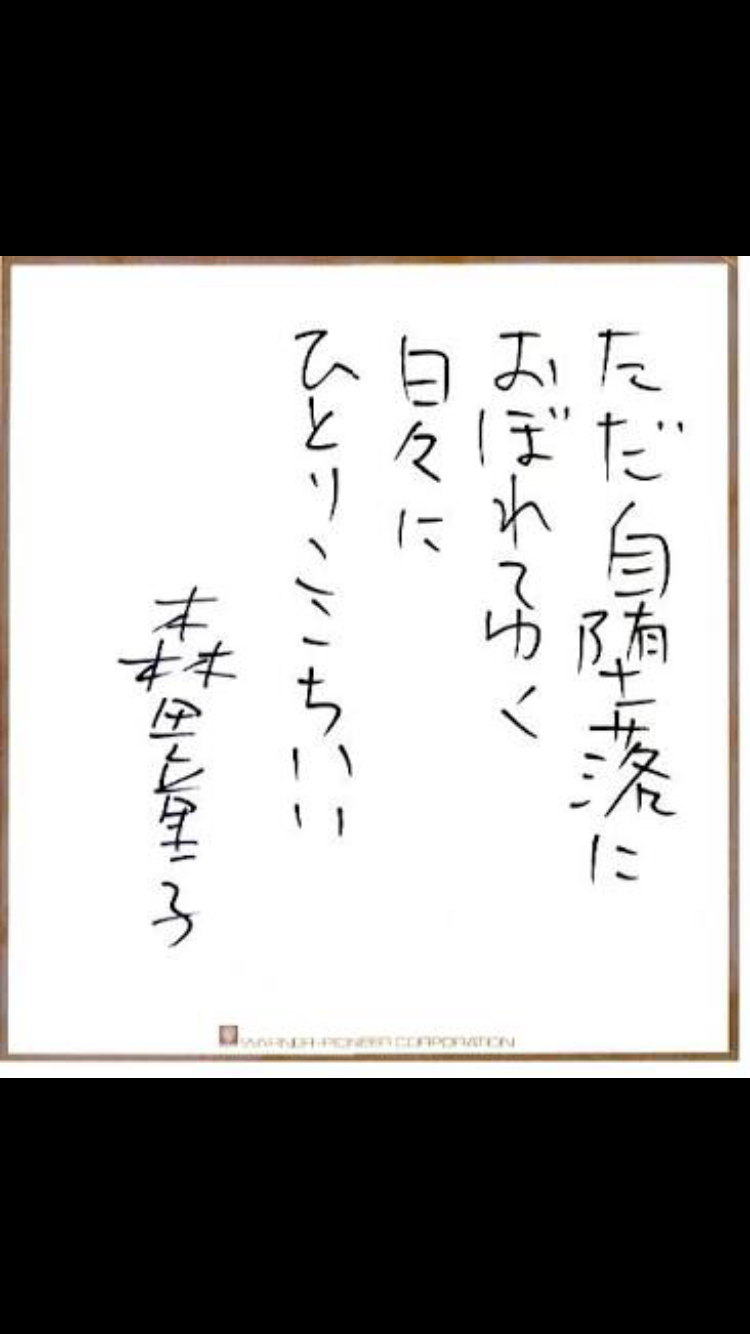 ただ自堕落に
おぼれてゆく
日々に
ひとりここちいい
森田童子
WARNER-PIONEER CORPORATION